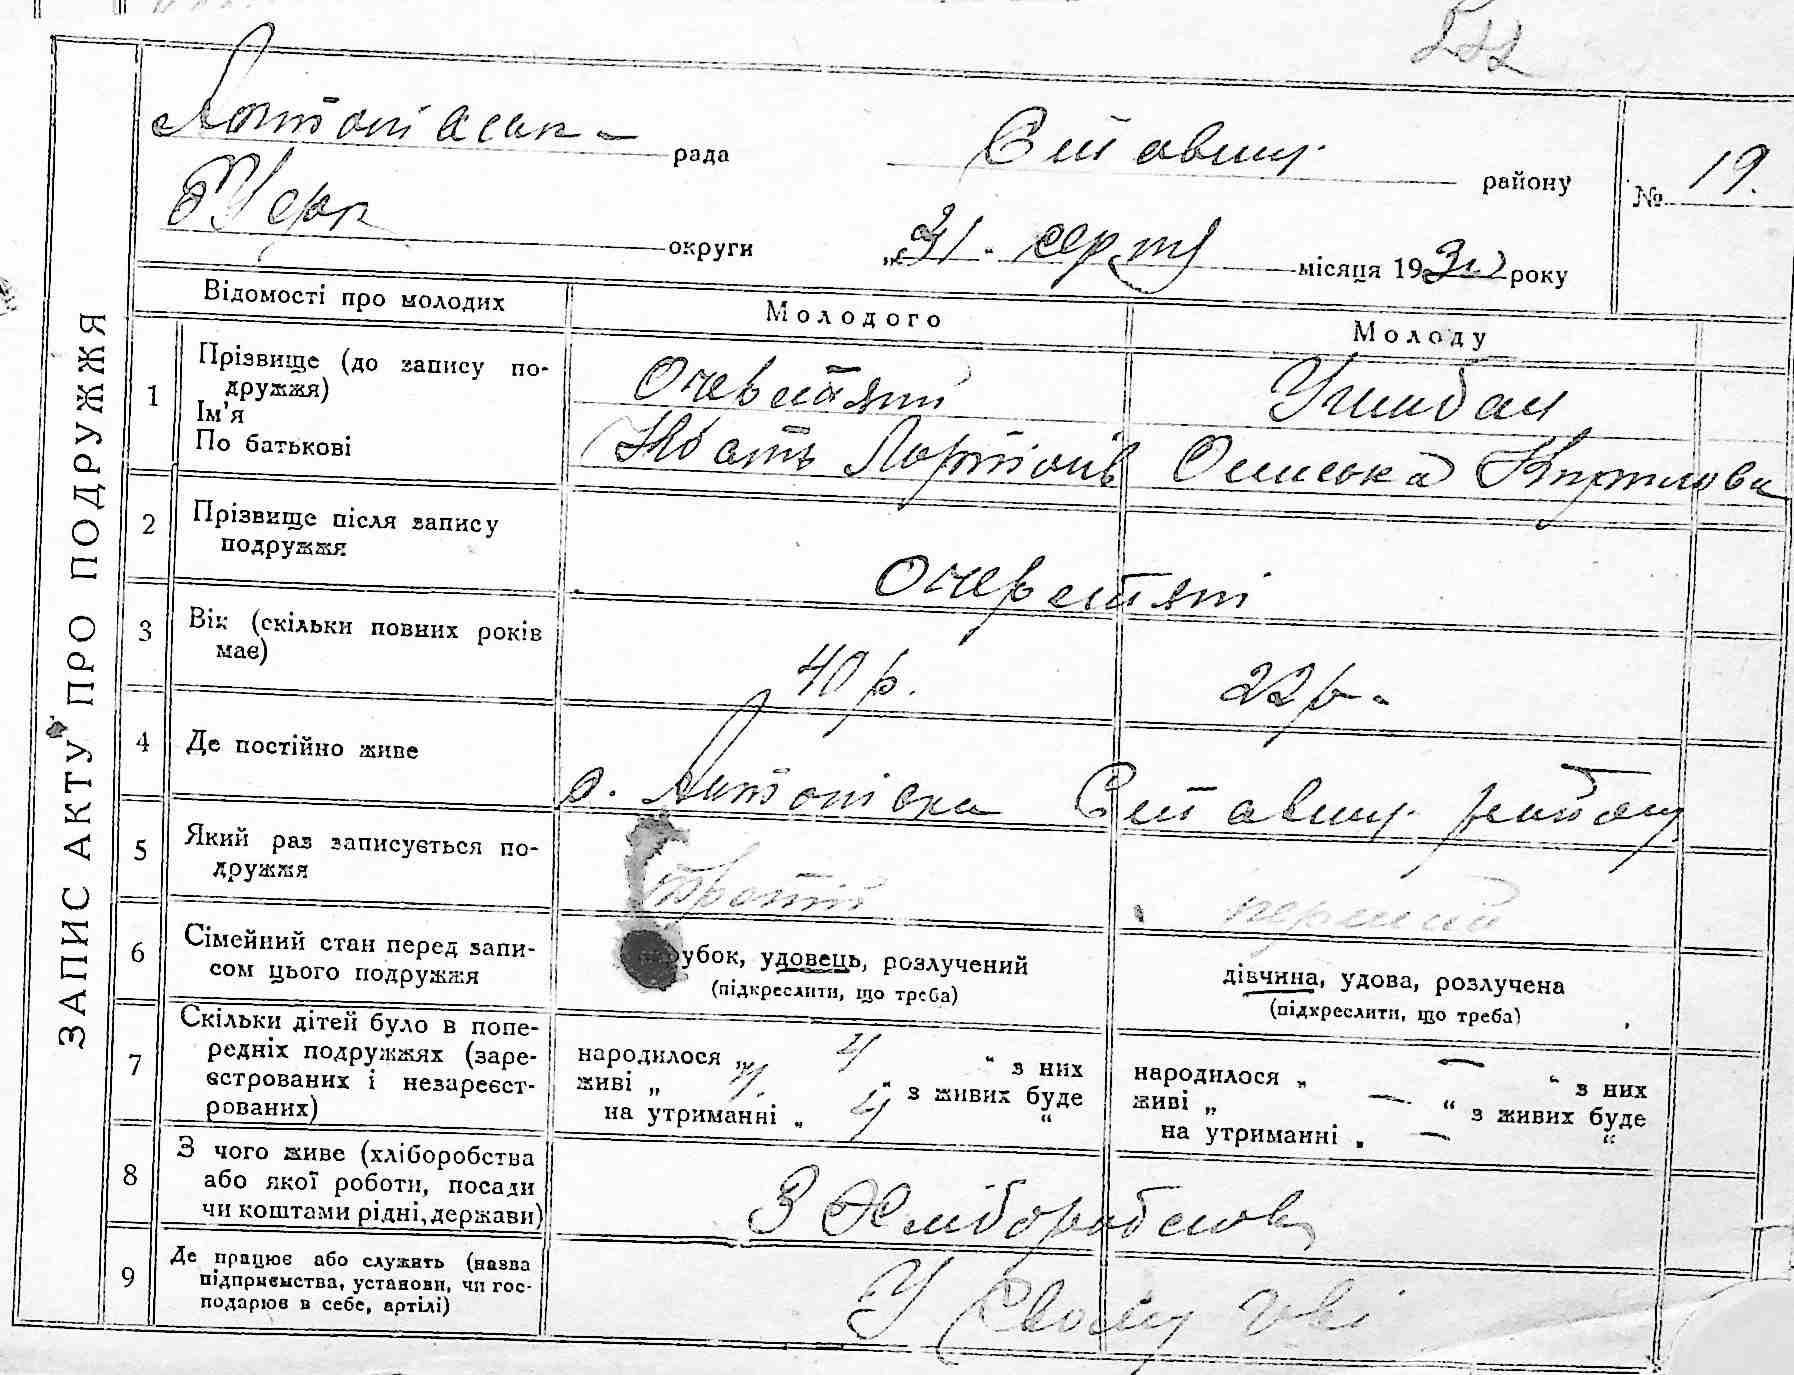 Антонівськ - рада Ставищ. району № 19.
БЦерк округи „31" серпня місяця 1930 року
ЗАПИС АКТУ ПРО ПОДРУЖЖЯ
Відомості про молодих Молодого Молоду
1 Прізвище (до запису по-
дружжя)
Ім'я
По батькові
Очеретяний
Кость Платонів Ониська Кирилова
2 Прізвище після запису
подружжя
Очеретяні
3 Вік (скільки повних років
має)
40 р. 22 р -
4 Де постійно живе
с. Антонівка Ставищ. району
5 Який раз записується по-
дружжя
третій перший
6 Сімейний стан перед запи-
сом цього подружжя
парубок, удовець, розлучений
(підкреслити, що треба)
дівчина, удова, розлучена
(підкреслити, що треба)
7 Скільки дітей було в попе-
редніх подружжях (заре-
єстрованих і незареєст-
рованих)
народилося „ 4 " з них
живі „ 4 " з живих буде
на утриманні „ 4 "
народилося „ — " з них
живі „ — " з живих буде
на утриманні „ — "
8 З чого живе (хліборобства
або якої роботи, посади
чи коштами рідні, держави)
З Хліборобства
9 Де працює або служить (назва
підприємства, установи, чи гос-
подарює в себе, артілі)
У своєму